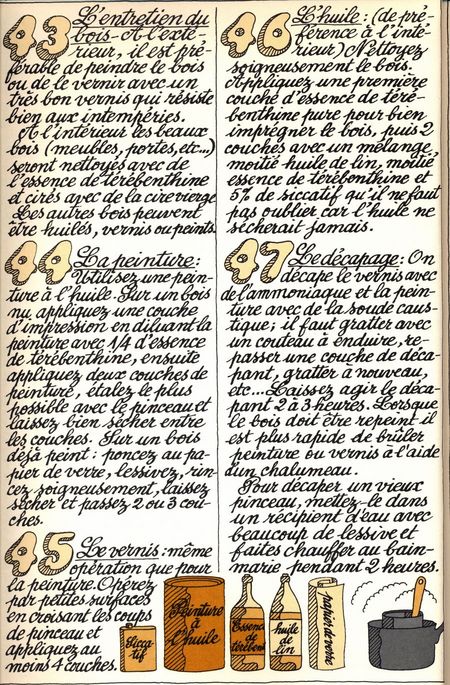 43 L'entretien du
bois - A l'exté-
rieur, il est pré-
férable de peindre le bois
ou de le vernir avec un
très bon vernis qui résiste
bien aux intempéries.
A l'intérieur les beaux
bois (meubles, portes, etc...)
seront nettoyés avec de
l'essence de térébenthine
et cirés avec de la cire vierge
Les autres bois peuvent
être huilés, vernis ou peints.
44 La peinture :
Utilisez une pein-
ture à l'huile. Sur un bois
nu, appliquez une couche
d'impression en diluant la
peinture avec 1/4 d'essence
de térébenthine, ensuite
appliquez deux couches de
peinture, étalez le plus
possible avec le pinceau et
laissez bien sécher entre
les couches. Sur un bois
déjà peint : poncez au pa-
pier de verre, lessivez, rin-
cez soigneusement, laissez
sécher et passez 2 ou 3 cou-
ches.
45 Le vernis : même
opération que pour
la peinture. Opérez
par petites surfaces
en croisant les coups
de pinceau et
appliquez au
moins 4 couches.
46 L'huile : (de pré-
férence à l'inté-
rieur) Nettoyez
soigneusement le bois.
Appliquez une première
couche d'essence de téré-
benthine pure pour bien
imprégner le bois, puis 2
couches avec un mélange,
moitié huile de lin, moitié
essence de térébenthine et
5% de siccatif qu'il ne faut
pas oublier car l'huile ne
sècherait jamais.
47 Le décapage : On
décape le vernis avec
de l'ammoniaque et la pein-
ture avec de la soude caus-
tique ; il faut gratter avec
un couteau à enduire, re-
passer une couche de déca-
pant, gratter à nouveau,
etc... Laissez agir le déca-
pant 2 à 3 heures. Lorsque
le bois doit être repeint il
est plus rapide de brûler
peinture ou vernis à l'aide
d'un chalumeau.
Pour décaper un vieux
pinceau, mettez-le dans
un récipient d'eau avec
beaucoup de lessive et
faites chauffer au bain-
marie pendant 2 heures.
Sicca
tif
Peinture
à
l'huile
Essence
de
térében
huile
de
lin
papier de verre